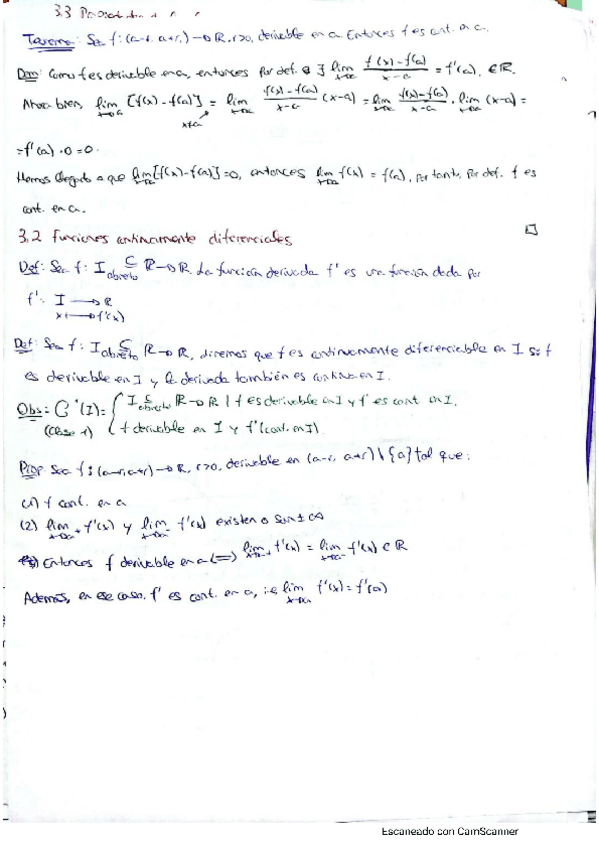 3.3
Teorema: Sea f: (a-r, a+r) → ℝ, r>0, derivable en a. Entonces f es cont. en a.
Dem: Como f es derivable en a, entonces por def. ∃ lim x→a (f(x)-f(a))/(x-a) = f'(a) ∈ ℝ.
Ahora bien, lim x→a [f(x)-f(a)] = lim x→a (f(x)-f(a))/(x-a) (x-a) = lim x→a (f(x)-f(a))/(x-a) · lim x→a (x-a) =
x≠a
= f'(a) · 0 = 0.
Hemos llegado a que lim x→a [f(x)-f(a)] = 0, entonces lim x→a f(x) = f(a), por tanto, por def. f es
cont. en a.
□
3.2 Funciones continuamente diferenciales
Def: Sea f: I ⊆ abierto ℝ → ℝ. La función derivada f' es una función dada por
f': I → ℝ
x ↦ f'(x)
Def: Sea f: I ⊆ abierto ℝ → ℝ, diremos que f es continuamente diferenciable en I si f
es derivable en I y la derivada también es continua en I.
Obs: C¹(I) = { I ⊆ abierto ℝ → ℝ | f es derivable en I y f' es cont. en I.
(Clase 1) f derivable en I y f' (cont. en I)
Prop Sea f: (a-r, a+r) → ℝ, r>0, derivable en (a-r, a+r) \ {a} tal que:
(1) f cont. en a
(2) lim x→a+ f'(x) y lim x→a- f'(x) existen o son ±∞
Entonces f derivable en a ⟺ lim x→a+ f'(x) = lim x→a- f'(x) ∈ ℝ
Además, en ese caso, f' es cont. en a, i.e. lim x→a f'(x) = f'(a)
Escaneado con CamScanner